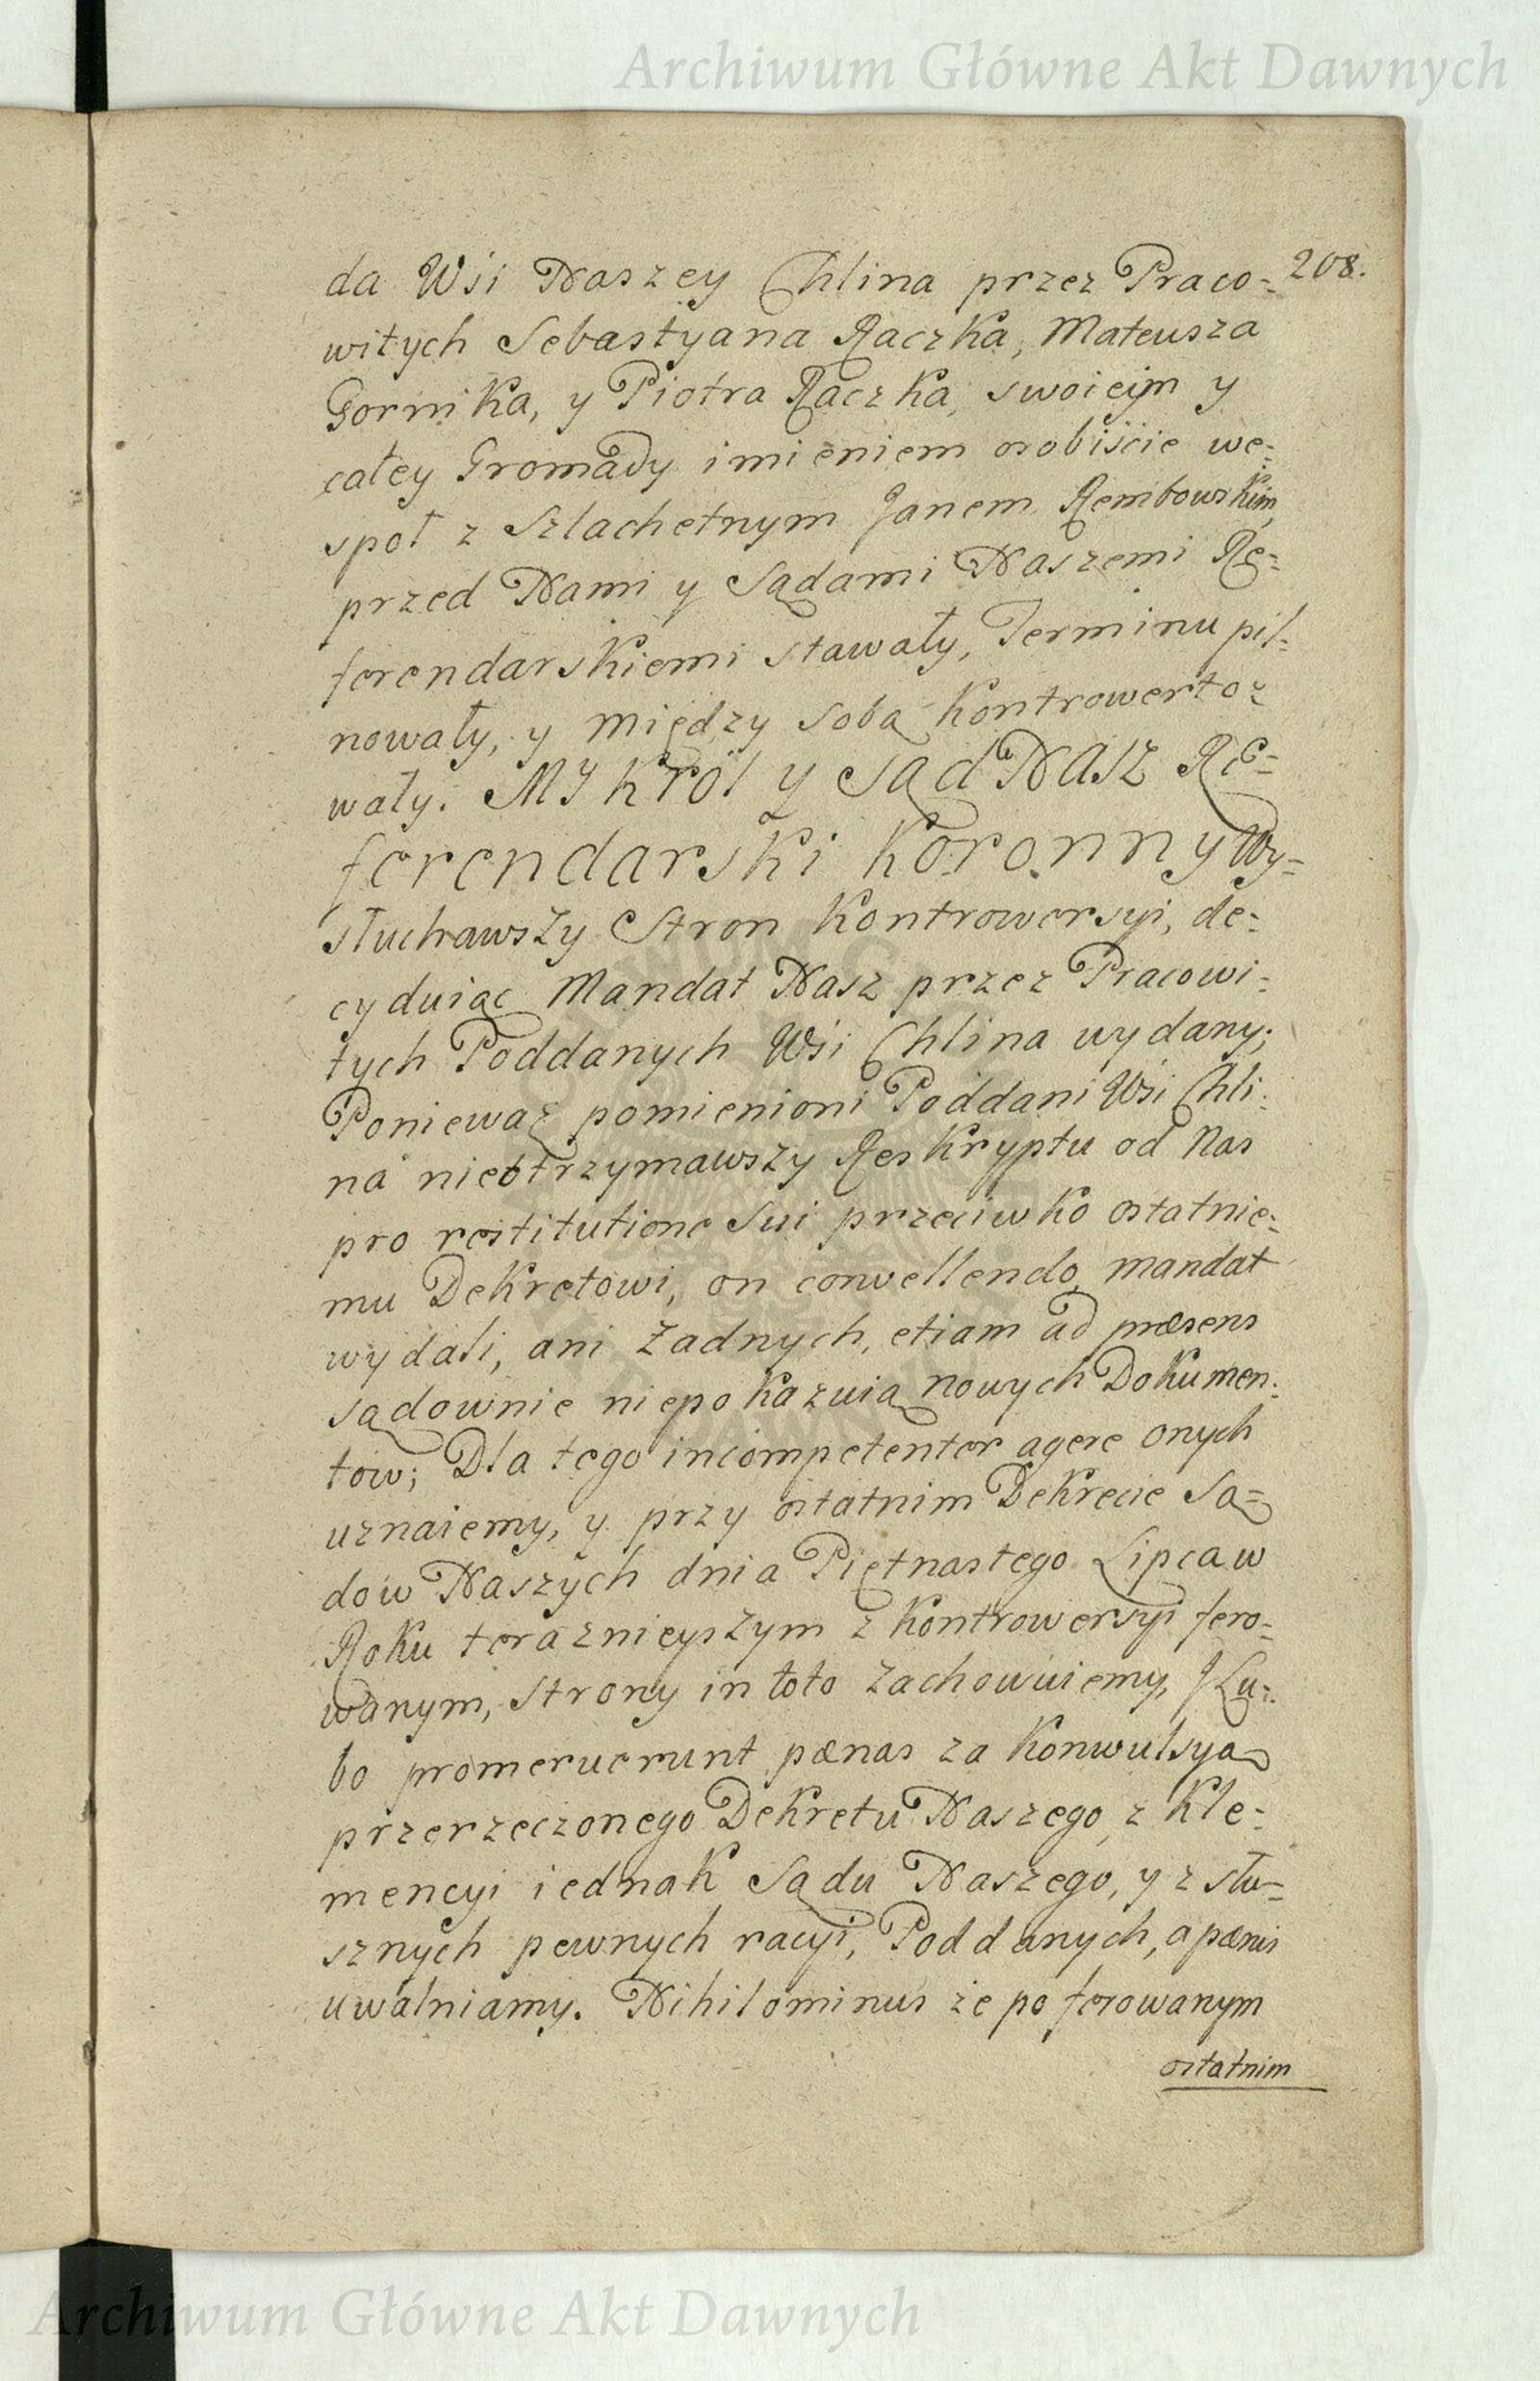 Archiwum Główne Akt Dawnych
208.
da Wsi Naszey Chlina przez Praco=
witych Sebastyana Raczka, Mateusza
Gornika, y Piotra Raczka, swoieym y
całey Gromady imieniem osobiście we=
społ z Szlachetnym Janem Rembowskim,
przed Nami y Sądami Naszemi Re=
ferendarskiemi stawały, Terminu pil=
nowały, y między sobą kontrowerto=
wały. MY Król y Sąd NASZ Re=
ferendarski Koronny Wy=
słuchawszy Stron Kontrowersyi, de=
cyduiąc Mandat Nasz przez Pracowi=
tych Poddanych Wsi Chlina wydany;
Ponieważ pomienioni Poddani Wsi Chli=
na nieotrzymawszy Reskryptu od Nas
pro restitutione sui przeciwko ostatnie=
mu Dekretowi, on convellendo, mandat
wydali, ani żadnych, etiam ad præsens
sądownie niepokazuią nowych Dokumen=
tow; Dla tego incompetenter agere onych
uznaiemy, y przy ostatnim Dekrecie Są=
dow Naszych dnia Piętnastego Lipca w
Roku teraznieyszym z kontrowersyi fero=
wanym, strony in toto zachowuiemy, J Lu=
bo promeruerunt pænas za konwulsyą
przerzeczonego Dekretu Naszego, z Kle=
mencyi iednak Sądu Naszego, y z słu=
sznych pewnych racyi, Poddanych, a pænis
uwalniamy. Nihilominus że po ferowanym
ostatnim
Archiwum Główne Akt Dawnych